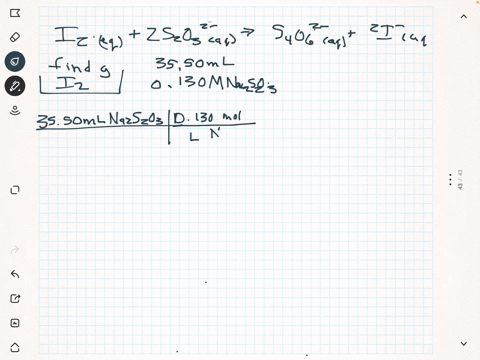 I₂ (aq) + 2S₂O₃²⁻ (aq) → S₄O₆²⁻ (aq) + 2I⁻ (aq
find g 35.50mL
I₂ 0.130M Na₂S₂O₃
35.50mL Na₂S₂O₃ | 0.130 mol
L N